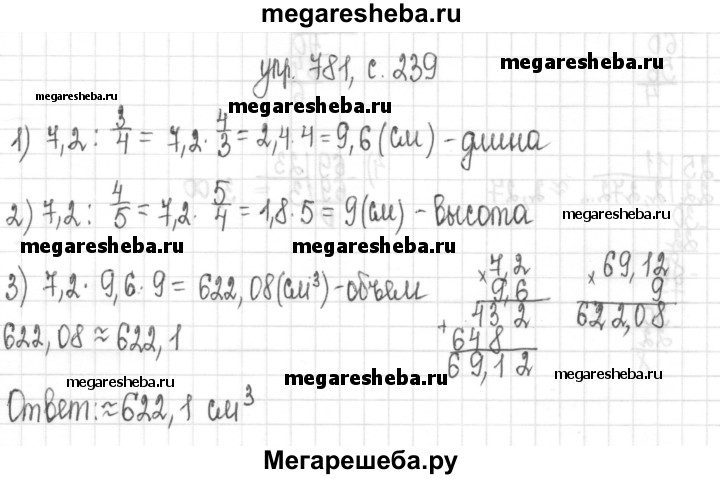 megaresheba.ru
упр. 781, с. 239
megaresheba.ru
megaresheba.ru
megaresheba.ru
1) 7,2 : 3/4 = 7,2 · 4/3 = 2,4 · 4 = 9,6 (см) - длина
2) 7,2 : 4/5 = 7,2 · 5/4 = 1,8 · 5 = 9 (см) - высота
megaresheba.ru
megaresheba.ru
megaresheba.ru
3) 7,2 · 9,6 · 9 = 622,08 (см³) - объем
622,08 ≈ 622,1
× 7,2
9,6
+ 432
648
69,12
× 69,12
9
622,08
megaresheba.ru
megaresheba.ru
megaresheba.ru
Ответ: ≈ 622,1 см³
Мегарешеба.ру